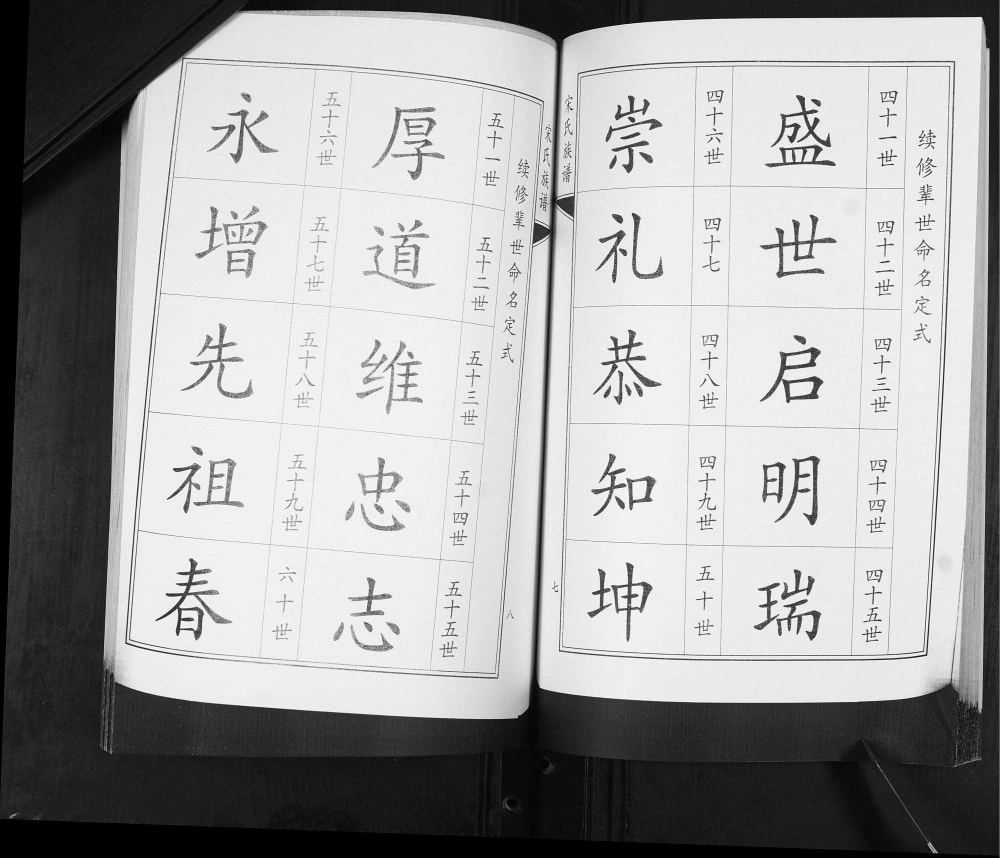 续修辈世命名定式
四十一世
盛
四十二世
世
四十三世
启
四十四世
明
四十五世
瑞
四十六世
崇
四十七
礼
四十八世
恭
四十九世
知
五十世
坤
宋氏族谱
七
宋氏族谱
八
续修辈世命名定式
五十一世
厚
五十二世
道
五十三世
维
五十四世
忠
五十五世
志
五十六世
永
五十七世
增
五十八世
先
五十九世
祖
六十世
春